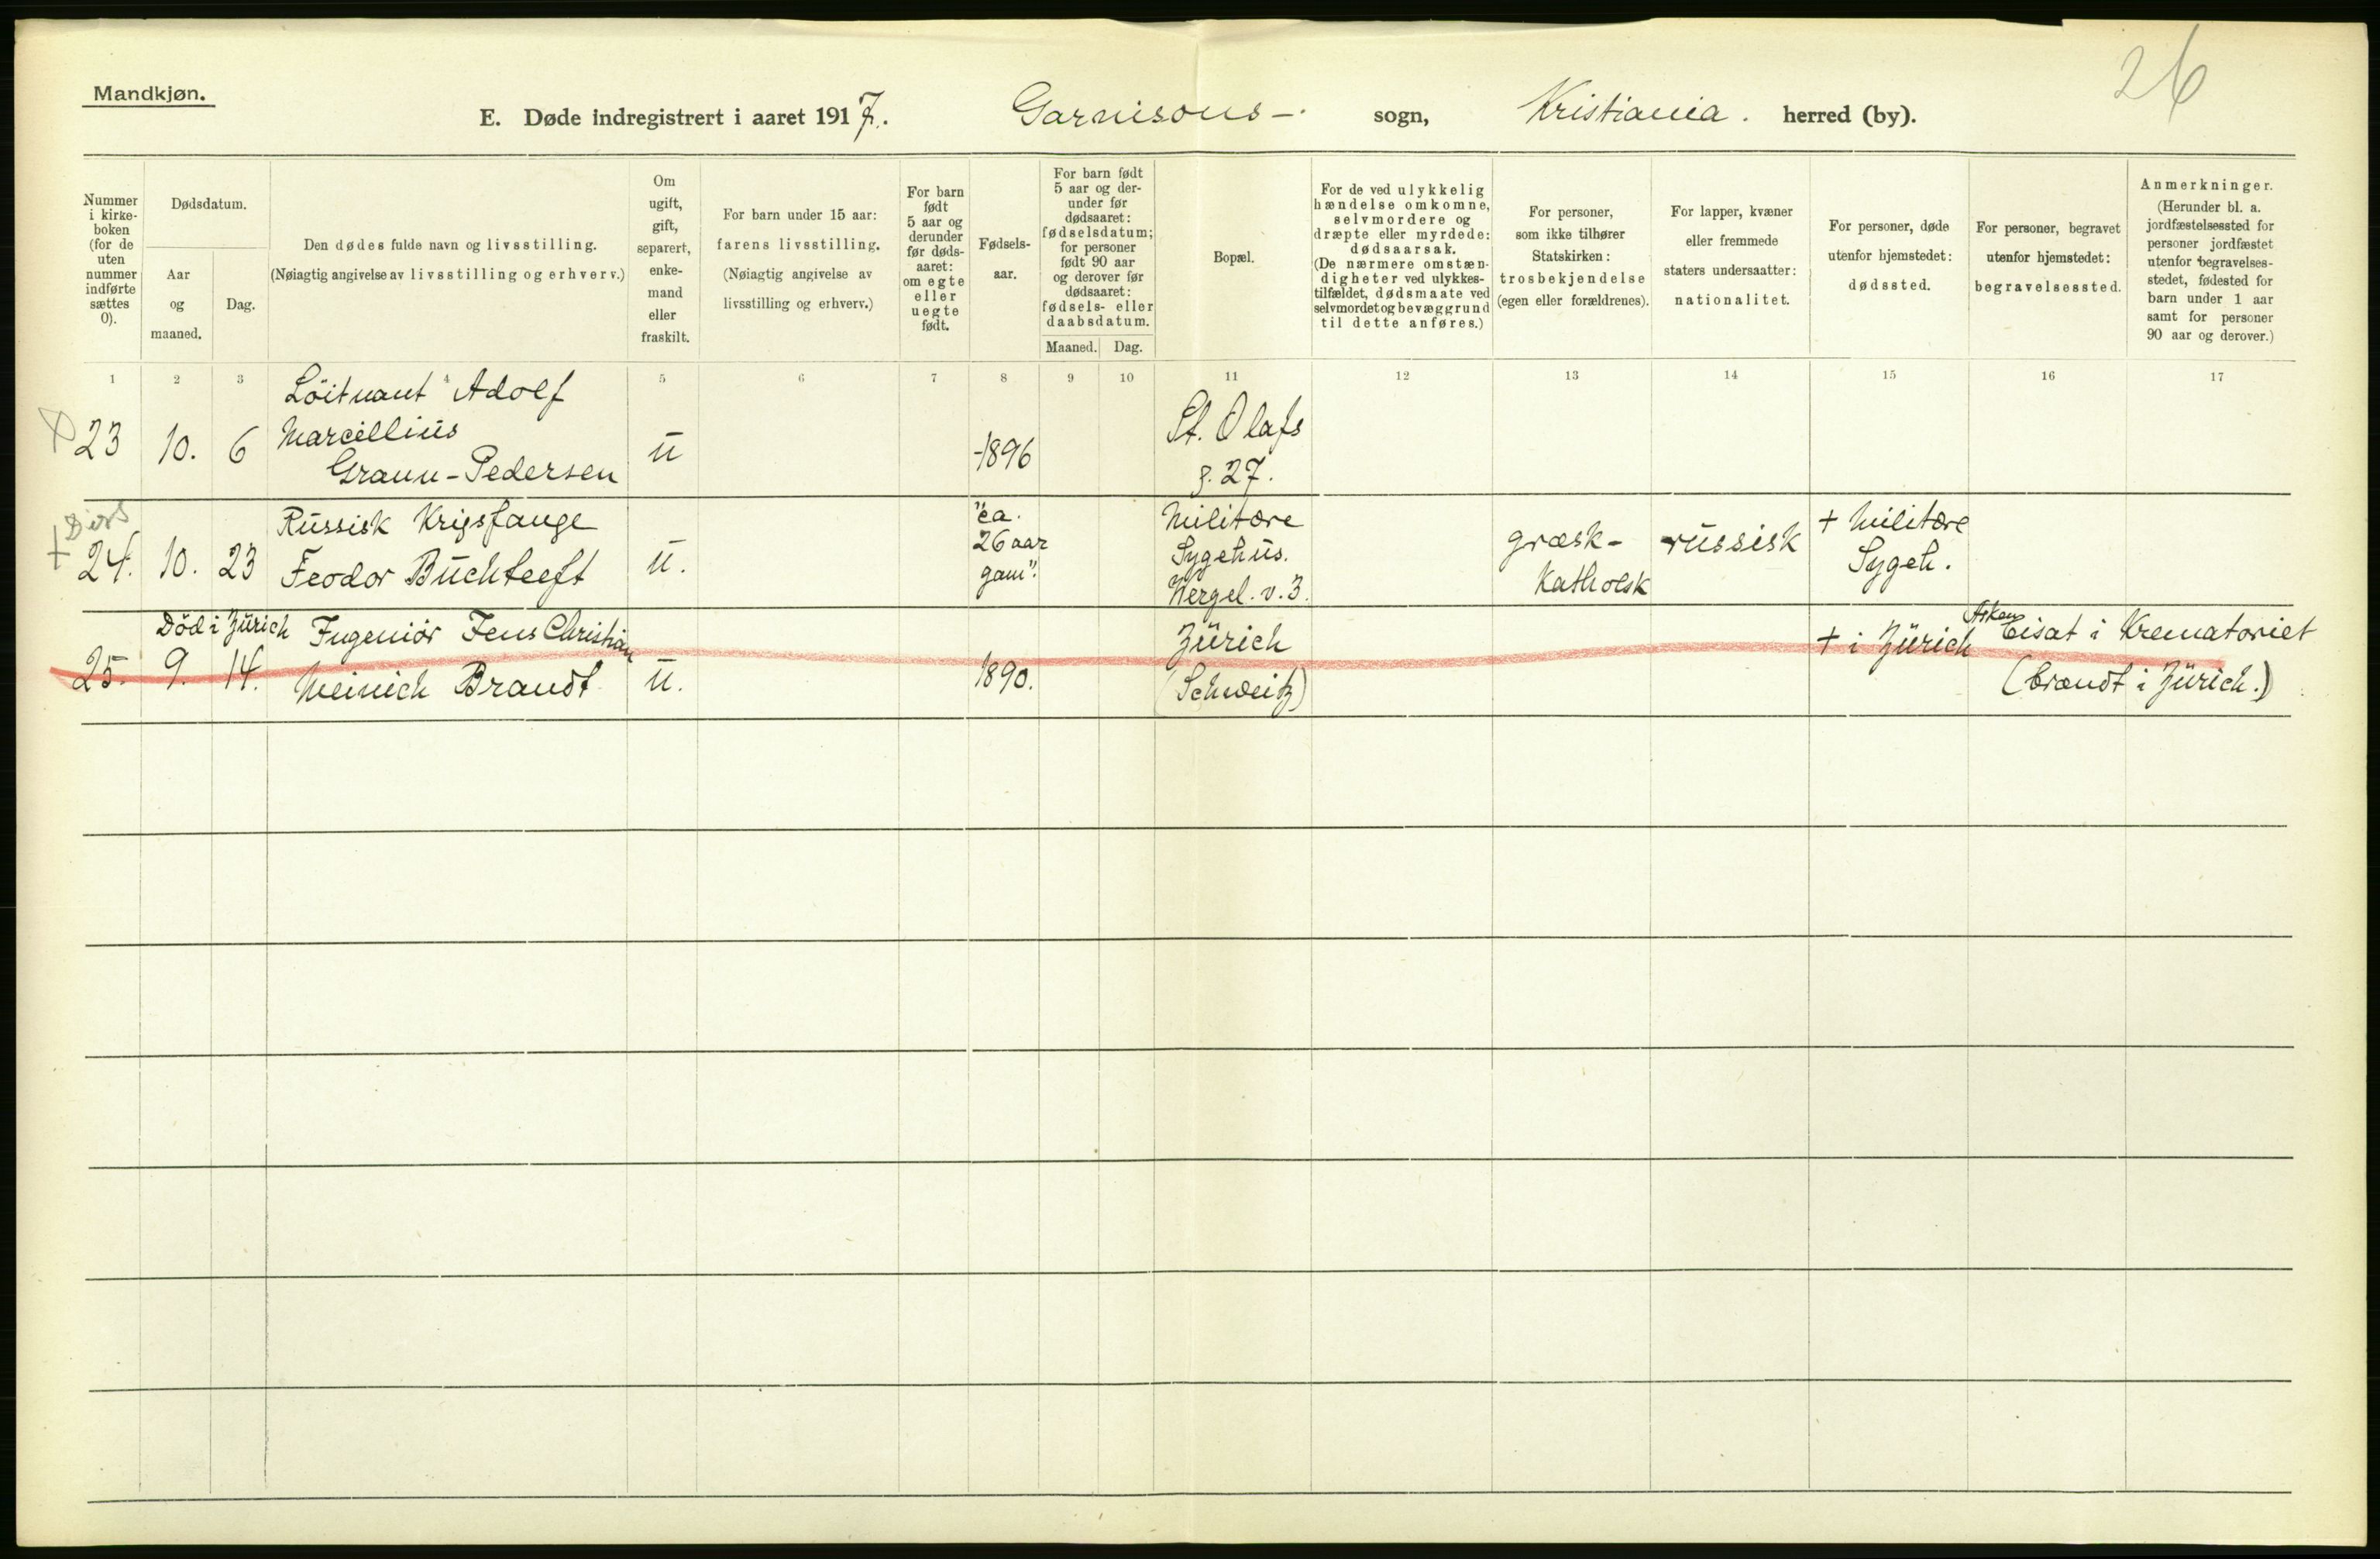 26
Mandkjøn.
E. Døde indregistrert i aaret 1917. Garnisons- sogn, Kristiania. herred (by).
Nummer i kirke-boken (for de uten nummer indførte sættes 0).
Dødsdatum.
Aar og maaned.
Dag.
Den dødes fulde navn og livsstilling.
(Nøiagtig angivelse av livsstilling og erhverv.)
Om ugift, gift, separert, enke-mand eller fraskilt.
For barn under 15 aar:
farens livsstilling.
(Nøiagtig angivelse av
livsstilling og erhverv.)
For barn født 5 aar og derunder før døds-aaret: om egte eller uegte født.
Fødsels-aar.
For barn født 5 aar og der-under før dødsaaret: fødselsdatum; for personer født 90 aar og derover før dødsaaret: fødsels- eller daabsdatum.
Maaned. Dag.
Bopæl.
For de ved ulykkelig hændelse omkomne, selvmordere og dræpte eller myrdede: dødsaarsak. (De nærmere omstæn-digheter ved ulykkes-tilfældet, dødsmaate ved selvmordet og bevæggrund til dette anføres.)
For personer, som ikke tilhører Statskirken: trosbekjendelse (egen eller forældrenes).
For lapper, kvæner eller fremmede staters undersaatter: nationalitet.
For personer, døde utenfor hjemstedet: dødssted.
For personer, begravet utenfor hjemstedet: begravelsessted.
Anmerkninger.
(Herunder bl. a. jordfæstelsessted for personer jordfæstet utenfor begravelses-stedet, fødested for barn under 1 aar samt for personer 90 aar og derover.)
1 2 3 4 5 6 7 8 9 10 11 12 13 14 15 16 17
Löitnant Adolf
23 10. 6 Marcellius ū -1896 St. Olafs
Grann-Pedersen g. 27.
Russisk Krigsfange "ca. Militære + Militære
24. 10. 23 Feodor Buchteeft ū. 26 aar gam". Sygehus. græsk- russisk Sygeh.
Wergel. v. 3. Katholsk
Död i Zürich Ingeniör Jens Christian Zürich + i Zürich Asken bisat i Krematoriet
25. 9. 14. Meinich Brandt ū. 1890. (Schweitz) (brændt i Zürich.)